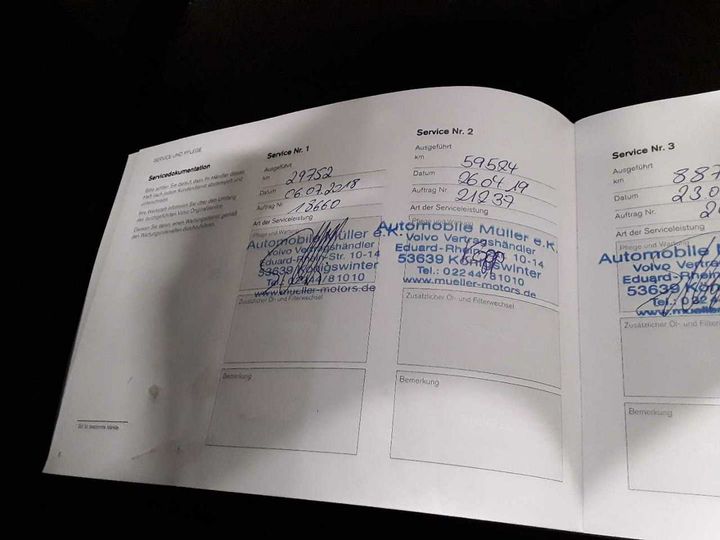 SERVICE UND PFLEGE
Servicedokumentation
Bitte achten Sie darauf, dass Ihr Händler dieses
Heft nach jedem Kundendienst abstempelt und
unterschreibt.
Service Nr. 1
Ausgeführt
km 29752
Datum 06.07.2018
Auftrag Nr. 13660
Art der Serviceleistung
Pflege und Wartung
Automobile Müller e.K.
Volvo Vertragshändler
Eduard-Rhein-Str. 10-14
53639 Königswinter
Tel.: 02244/81010
www.mueller-motors.de
Zusätzlicher Öl- und Filterwechsel
Bemerkung
Service Nr. 2
Ausgeführt
km 59524
Datum 26.04.19
Auftrag Nr. 21237
Art der Serviceleistung
Pflege und Wartung
Automobile Müller e.K.
Volvo Vertragshändler
Eduard-Rhein-Str. 10-14
53639 Königswinter
Tel.: 02244/81010
www.mueller-motors.de
Zusätzlicher Öl- und Filterwechsel
Bemerkung
Service Nr. 3
Ausgeführt
km 887
Datum 23.0
Auftrag Nr. 2
Art der Serviceleistung
Pflege und Wartung
Automobile
Volvo Vertra
Eduard-Rhein
53639 König
Tel.: 0224
www.mueller
Zusätzlicher Öl- und Filterw
Bemerkung
6